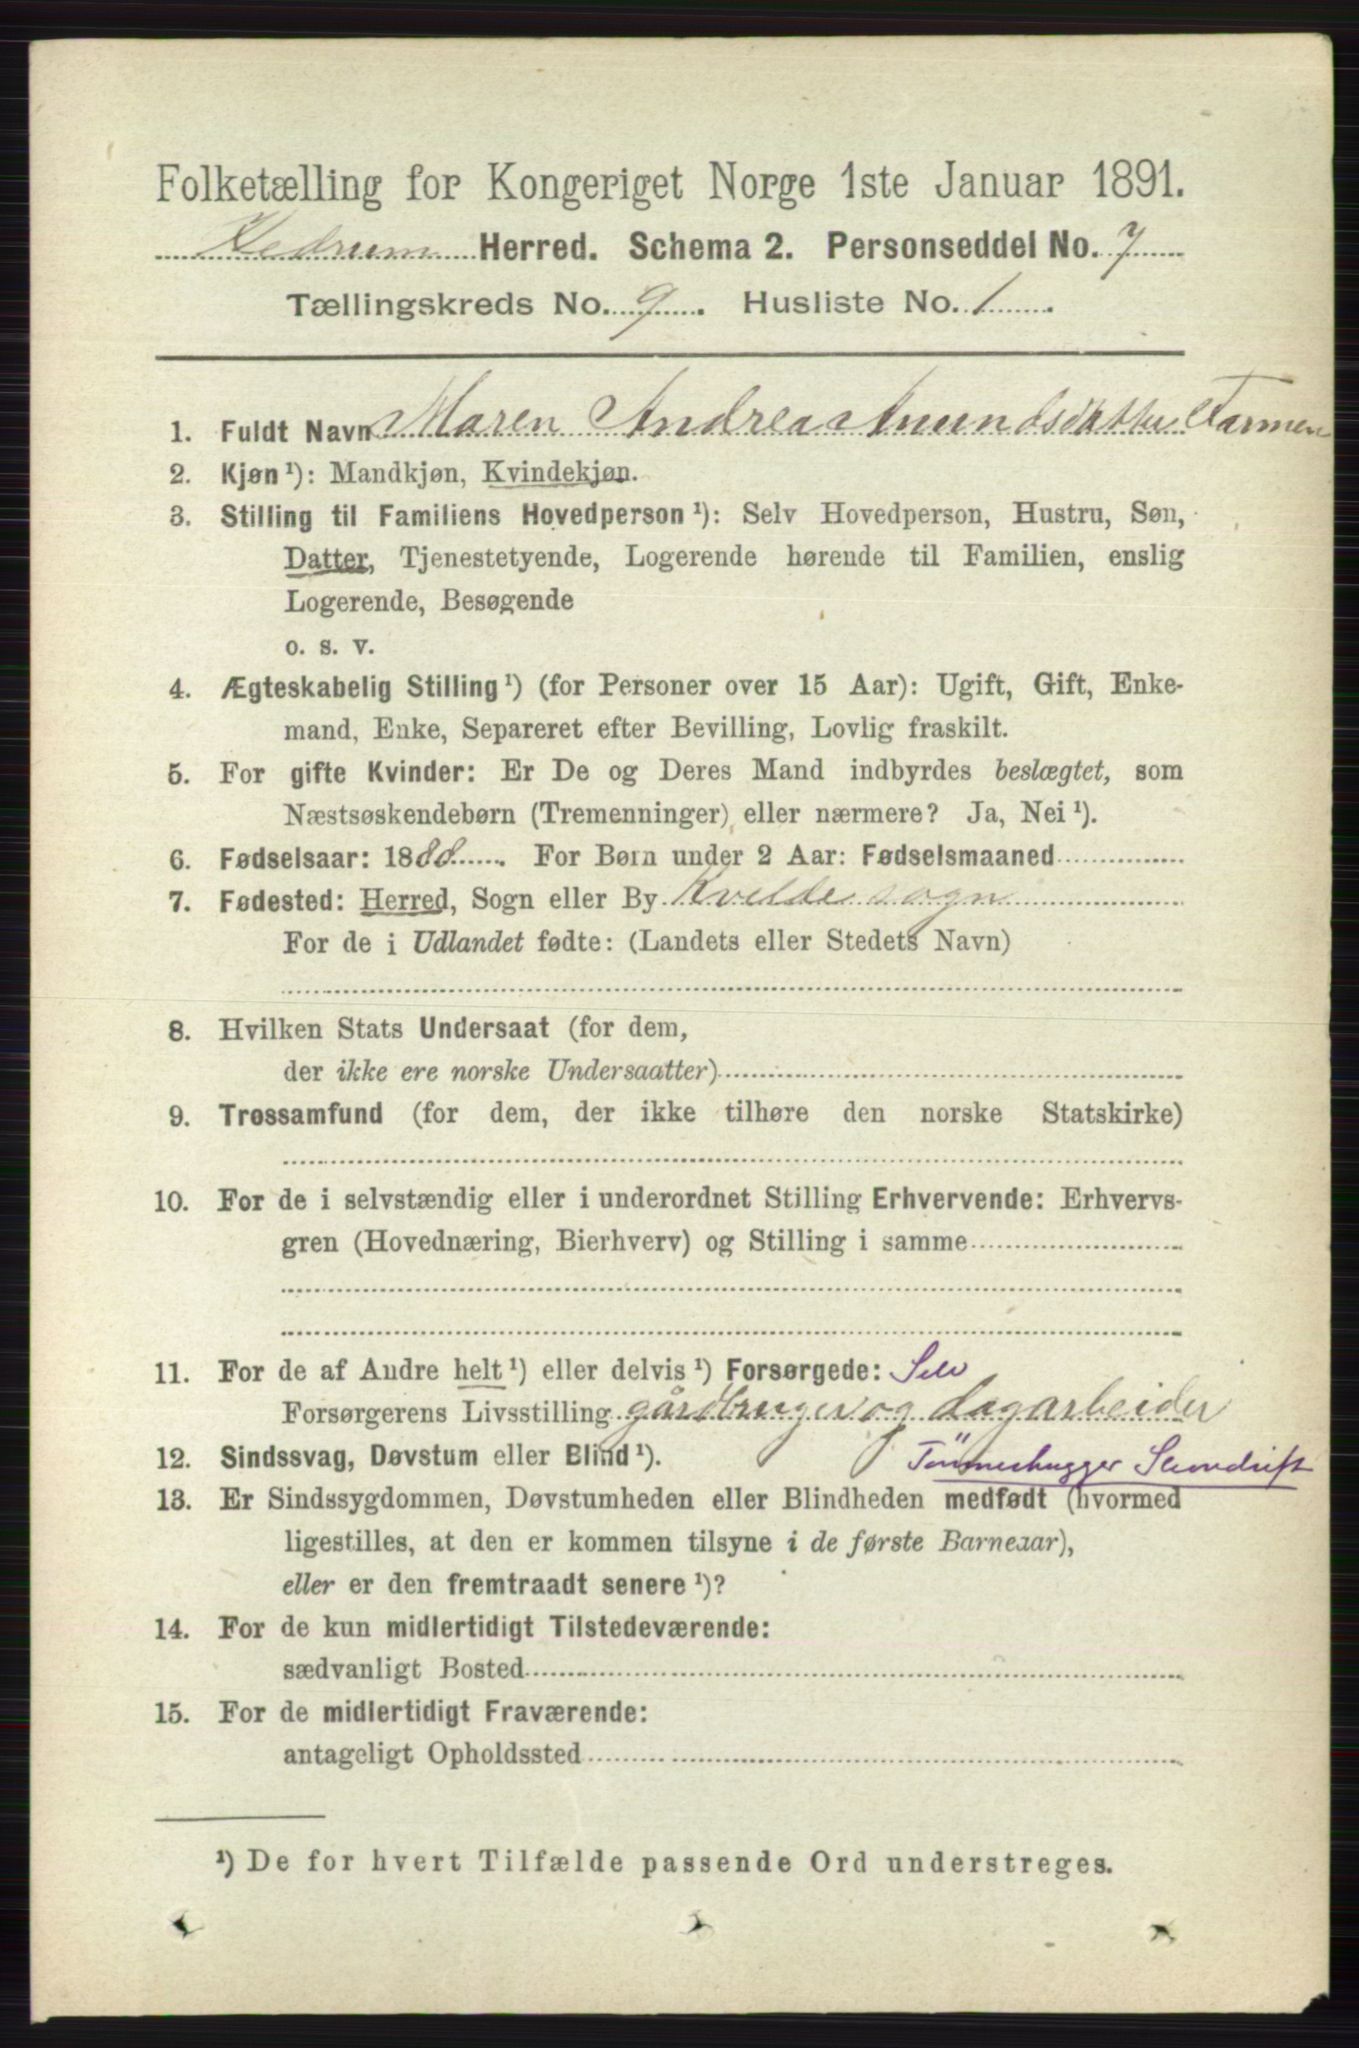 Folketælling for Kongeriget Norge 1ste Januar 1891.
Hedrum Herred. Schema 2. Personseddel No. 7
Tællingskreds No. 9. Husliste No. 1.
1. Fuldt Navn Maren Andrea Amundsdatter Farmen
2. Kjøn ¹): Mandkjøn, Kvindekjøn.
3. Stilling til Familiens Hovedperson ¹): Selv Hovedperson, Hustru, Søn,
Datter, Tjenestetyende, Logerende hørende til Familien, enslig
Logerende, Besøgende
o. s. v.
4. Ægteskabelig Stilling ¹) (for Personer over 15 Aar): Ugift, Gift, Enke-
mand, Enke, Separeret efter Bevilling, Lovlig fraskilt.
5. For gifte Kvinder: Er De og Deres Mand indbyrdes beslægtet, som
Næstsøskendebørn (Tremenninger) eller nærmere? Ja, Nei ¹).
6. Fødselsaar: 1888. For Børn under 2 Aar: Fødselsmaaned
7. Fødested: Herred, Sogn eller By Kvelde sogn
For de i Udlandet fødte: (Landets eller Stedets Navn)
8. Hvilken Stats Undersaat (for dem,
der ikke ere norske Undersaatter)
9. Trossamfund (for dem, der ikke tilhøre den norske Statskirke)
10. For de i selvstændig eller i underordnet Stilling Erhvervende: Erhvervs-
gren (Hovednæring, Bierhverv) og Stilling i samme
11. For de af Andre helt ¹) eller delvis ¹) Forsørgede: Selv
Forsørgerens Livsstilling gårdbruger og dagarbeider
12. Sindssvag, Døvstum eller Blind ¹). Tømmerhugger
13. Er Sindssygdommen, Døvstumheden eller Blindheden medfødt (hvormed
ligestilles, at den er kommen tilsyne i de første Barneaar),
eller er den fremtraadt senere ¹)?
14. For de kun midlertidigt Tilstedeværende:
sædvanligt Bosted
15. For de midlertidigt Fraværende:
antageligt Opholdssted
¹) De for hvert Tilfælde passende Ord understreges.